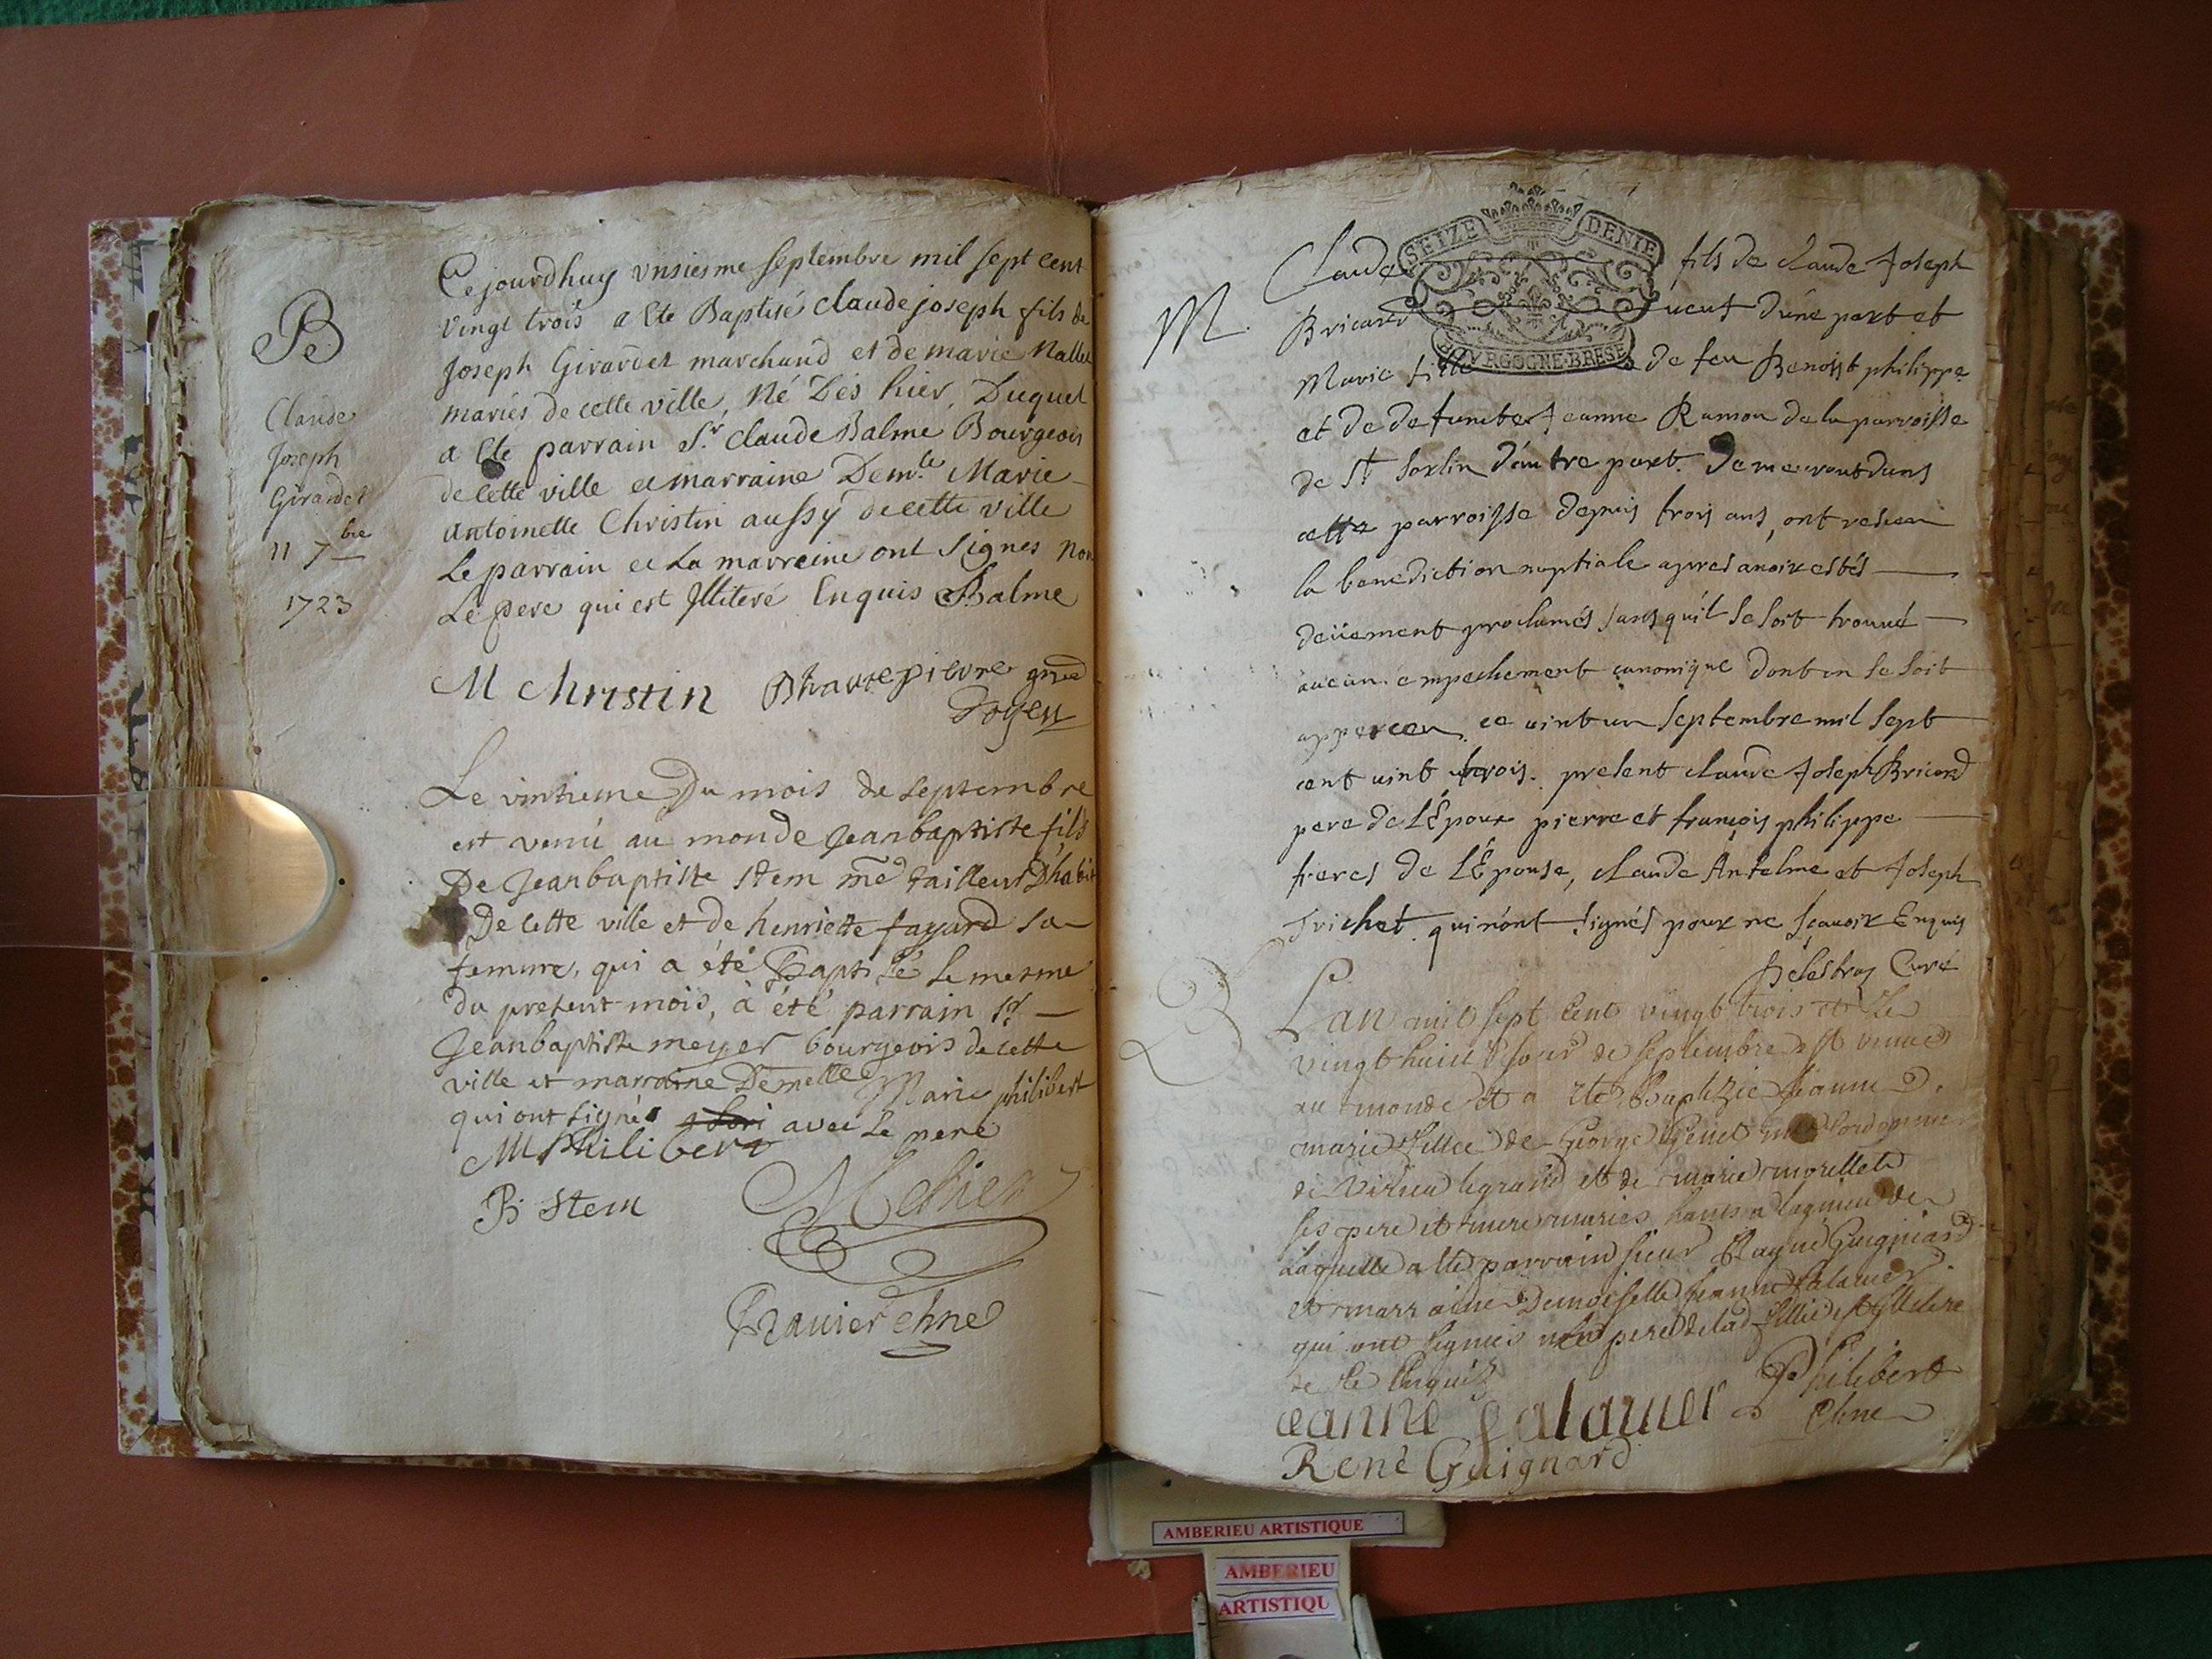 B
Claude
Joseph
Girardet
11 7bre
1723
Cejourdhuy vnsiesme septembre mil sept cent
vingt trois a Ete Baptisé claude joseph fils de
Joseph Girardet marchand et de marie
mariés de cette ville, Né Dés hier, Duquel
a Ete parrain Sr. claude Balme Bourgeois
de cette ville et marraine Demlle Marie
antoinette Christin aussy de cette ville
Le parrain et La marreine ont signes non
Le pere qui est Illiteré Enquis Balme
M Christin Bhautepierre
Doyen
Le vintieme Du mois de septembre
est venú au monde Jeanbaptiste fils
De Jeanbaptiste Stem me tailleur D'habit
De cette ville et de henriette fayard sa
femme, qui a été Baptisé le mesme
du present mois, à été parrain sr
Jeanbaptiste meyer bourgeois de cette
ville et marraine Demelle Marie philibert
qui ont signés avec le pere
M Philibert
B Stem
Ravier
M.
Claude fils de claude Joseph
Bricard d'une part et
Marie fille de feu Benoist philippe
et de defuncte Jeanne Ramon de la parroisse
de St Sorlin d'autre part. Demeurant dans
cette parroisse depuis trois ans, ont receu
la benediction nuptiale apres avoir estés
deüement proclamés sans qu'il se soit trouué
aucun empechement canonique dont on se soit
apperceu ce uint un septembre mil sept
cent uint trois. present claude Joseph Bricard
pere de l'Époux pierre et françois philippe
freres de l'Épouse, claude Antelme et Joseph
Trichet qui n'ont signés pour ne sçauoir Enquis
Delestraz Curé
SEIZE DENIE
BOVRGOGNE·BRESE
B
Lan mil sept cent vingt trois et le
vingt huict de septembre est venue
au monde et a ete Baptizie Jeanne
marie fillie de George Genet
de Virieu le grand et de marie morellet
ses pere et mere maries
Laquelle a ete parrain sieur Guigniard
et marraine Demoiselle Jeanne
qui ont signés
de ce Enquis
Philibert
Jeanne
René Guignard
AMBERIEU ARTISTIQUE
AMBERIEU
ARTISTIQU